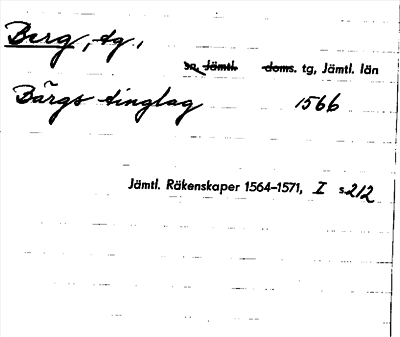 Berg, tg.,
sn, Jämtl. doms. tg, Jämtl. län
Bärgs tinglag 1566
Jämtl. Räkenskaper 1564–1571, I s. 212